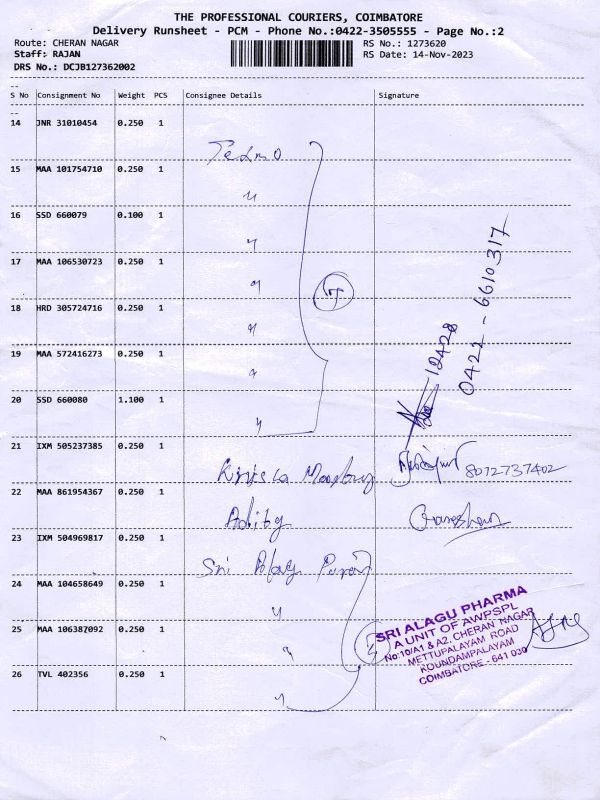 THE PROFESSIONAL COURIERS, COIMBATORE
Delivery Runsheet - PCM - Phone No.:0422-3505555 - Page No.:2
Route: CHERAN NAGAR
RS No.: 1273620
Staff: RAJAN
RS Date: 14-Nov-2023
DRS No.: DCJB127362002
S No Consignment No Weight PCS Consignee Details Signature
14 JNR 31010454 0.250 1
15 MAA 101754710 0.250 1
16 SSD 660079 0.100 1
17 MAA 106530723 0.250 1
18 HRD 305724716 0.250 1
19 MAA 572416273 0.250 1
20 SSD 660080 1.100 1
12428
0422-6610317
21 IXM 505237385 0.250 1
8072737402
22 MAA 861954367 0.250 1
23 IXM 504969817 0.250 1
Sri
24 MAA 104658649 0.250 1
25 MAA 106387092 0.250 1
26 TVL 402356 0.250 1
SRI ALAGU PHARMA
A UNIT OF AWPSPL
No:10/A1 & A2, CHERAN NAGAR
METTUPALAYAM ROAD
KOUNDAMPALAYAM
COIMBATORE - 641 030